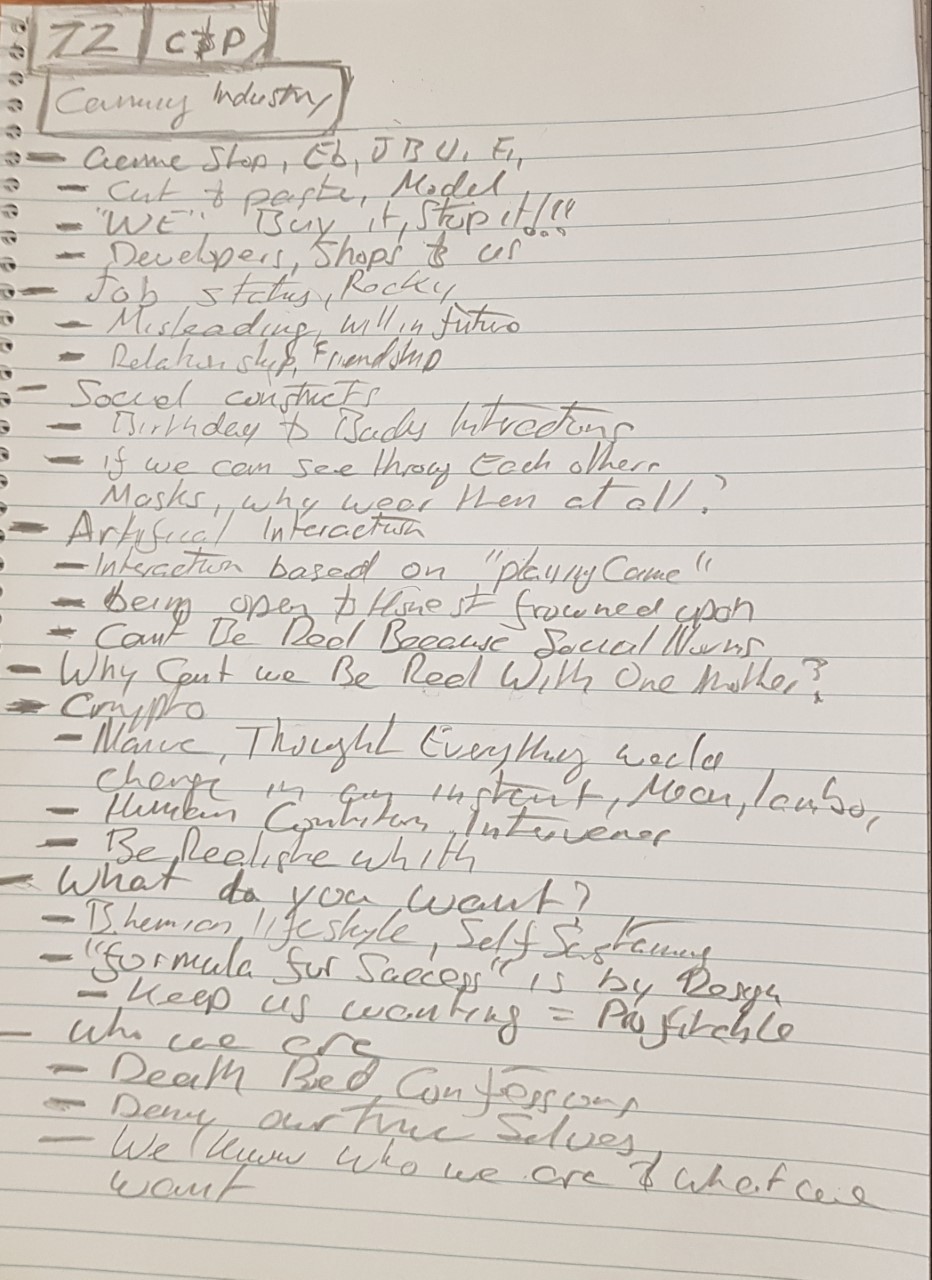 72 C&P
Gaming Industry
- Game Stop, Eb, J B U,
- Cut & paste, Model
- "WE", Buy it, Stop it!!!
- Developers, Shops & us
- Job status, Rocky
- Misleading, will in future
- Relationship, Friendship
- Social constructs
- Birthday & Interactions
- if we can see throug Each others
Masks, why wear then at all?
- Artifical Interaction
- Interaction based on "playing Game"
- Being open & Honest frowned upon
- Cant Be Real Because Social Norms
- Why Cant we Be Real With One Another?
- Crypto
- Naive, Thought Everything would
change in an instant, Moon, lambo,
- Human Condition, Intervenes
- Be Realistic
- What do you want?
- Bhemian lifestyle, Self Sustaining
- "formula for Success" is by Design
- Keep us wanting = Profitable
- Who we are
- Death Bed Confessions
- Deny our True Selves,
- We Know who we are & what we
want